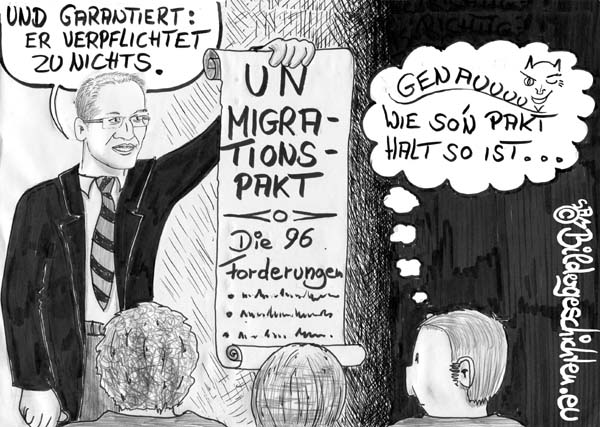 UND GARANTIERT:
ER VERPFLICHTET
ZU NICHTS.
UN
MIGRA-
TIONS-
PAKT
Die 96
Forderungen
GENAUUUUU
WIE SO'N PAKT
HALT SO IST...
©Bildergeschichten.eu